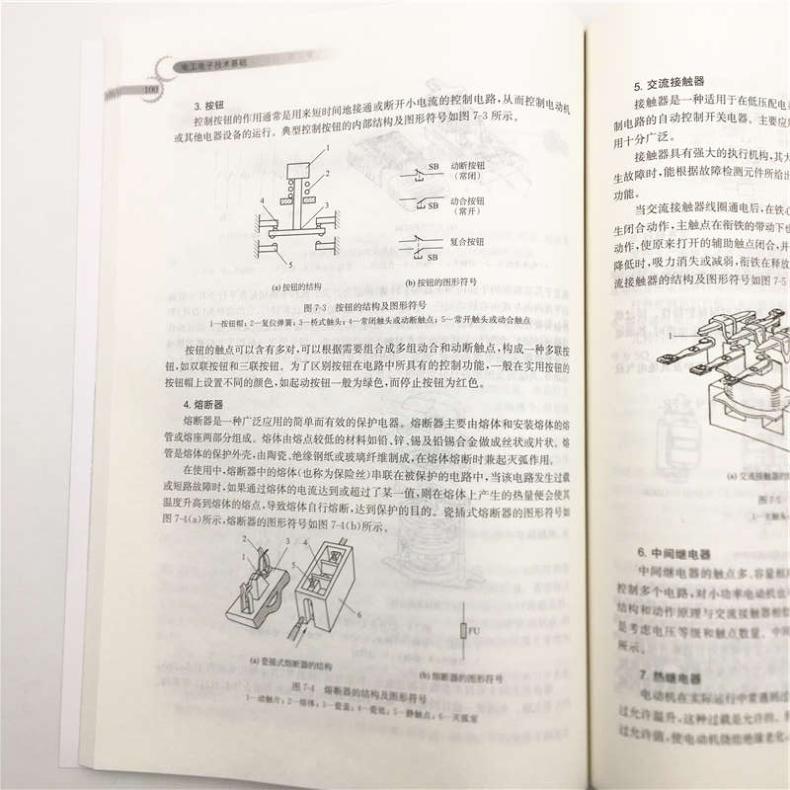 电工电子技术基础
100
3. 按钮
控制按钮的作用通常是用来短时间地接通或断开小电流的控制电路,从而控制电动机
或其他电器设备的运行。典型控制按钮的内部结构及图形符号如图 7-3 所示。
1
2
3
4
5
SB 动断按钮
(常闭)
SB 动合按钮
(常开)
SB 复合按钮
(a) 按钮的结构 (b) 按钮的图形符号
图 7-3 按钮的结构及图形符号
1—按钮帽;2—复位弹簧;3—桥式触头;4—常闭触头或动断触点;5—常开触头或动合触点
按钮的触点可以含有多对,可以根据需要组合成多组动合和动断触点,构成一种多联按
钮,如双联按钮和三联按钮。为了区别按钮在电路中所具有的控制功能,一般在实用按钮的
按钮帽上设置不同的颜色,如起动按钮一般为绿色,而停止按钮为红色。
4. 熔断器
熔断器是一种广泛应用的简单而有效的保护电器。熔断器主要由熔体和安装熔体的熔
管或熔座两部分组成。熔体由熔点较低的材料如铅、锌、锡及铅锡合金做成丝状或片状。熔
管是熔体的保护外壳,由陶瓷、绝缘钢纸或玻璃纤维制成,在熔体熔断时兼起灭弧作用。
在使用中,熔断器中的熔体(也称为保险丝)串联在被保护的电路中,当该电路发生过载
或短路故障时,如果通过熔体的电流达到或超过了某一值,则在熔体上产生的热量便会使其
温度升高到熔体的熔点,导致熔体自行熔断,达到保护的目的。瓷插式熔断器的图形符号如
图 7-4(a)所示,熔断器的图形符号如图 7-4(b)所示。
2
3
1
4
5
6
FU
(a) 瓷插式熔断器的结构
(b) 熔断器的图形符号
图 7-4 熔断器的结构及图形符号
1—动触片;2—熔体;3—瓷盖;4—瓷底;5—静触点;6—灭弧室
5. 交流接触器
接触器是一种适用于在低压配电
制电路的自动控制开关电器。主要应
用十分广泛。
接触器具有强大的执行机构,其
生故障时,能根据故障检测元件所给
功能。
当交流接触器线圈通电后,在铁
生闭合动作,主触点在衔铁的带动下
动作,使原来打开的辅助触点闭合,
降低时,吸力消失或减弱,衔铁在释放
流接触器的结构及图形符号如图 7-5
1
(a) 交流接触器的
图 7-5
1—主触头
6. 中间继电器
中间继电器的触点多、容量
控制多个电路,对小功率电动机也
结构和动作原理与交流接触器相
是考虑电压等级和触点数量。中间
所示。
7. 热继电器
电动机在实际运行中常遇到过
过允许温升,这种过载是允许的。
过允许值,使电动机绕组绝缘老化,